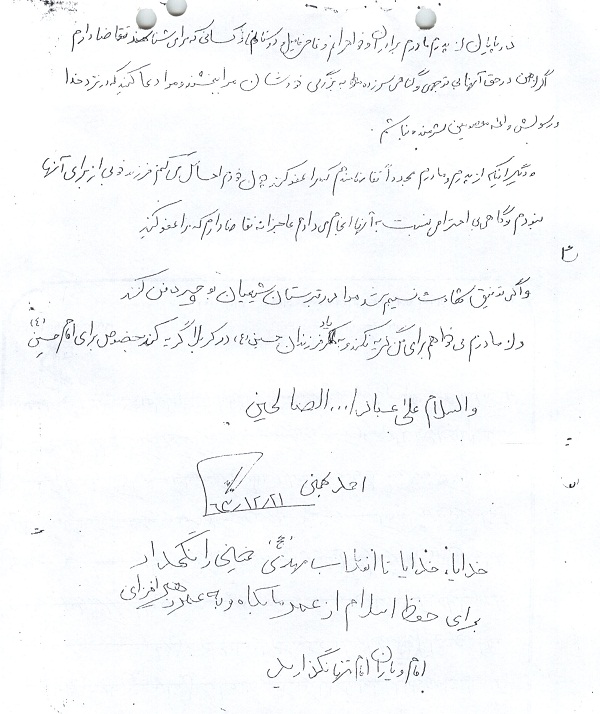 در پایان از پدرم مادرم برادران و خواهرانم و تمامی فامیل و دوستان و کسانی که برای شناختند تقاضا دارم
اگر من در حق آنها بی توجهی و گناهی سر زده به بزرگی خودشان مرا ببخشند و مرا دعا کنید که در نزد خدا
و رسولش و ائمه معصومین شرمنده نباشم.
دیگر اینکه از پدرم و مادرم مجدداً تقاضامندم که مرا عفو کنند چون خودم احساس می کنم فرزند خوبی از برای آنها
نبودم و گاهی بی احترامی نسبت به آنها انجام می دادم عاجزانه تقاضا دارم که مرا عفو کنید
و اگر توفیق شهادت نسیبم شد مرا در قبرستان شهیدان دفن کنند
و از مادرم می خواهم برای من گریه نکند و به یاد فرزندان حسین (ع) در کربلا گریه کند بخصوص برای امام حسین (ع)
والسلام علی عبادا... الصالحین
احمد
۶۴/۱۲/۲۱
خدایا، خدایا تا انقلاب مهدی (عج) خمینی را نگهدار
برای حفظ اسلام از عمر ما بکاه و به عمر رهبر افزای
امام و یاران امام تنها نگذارید